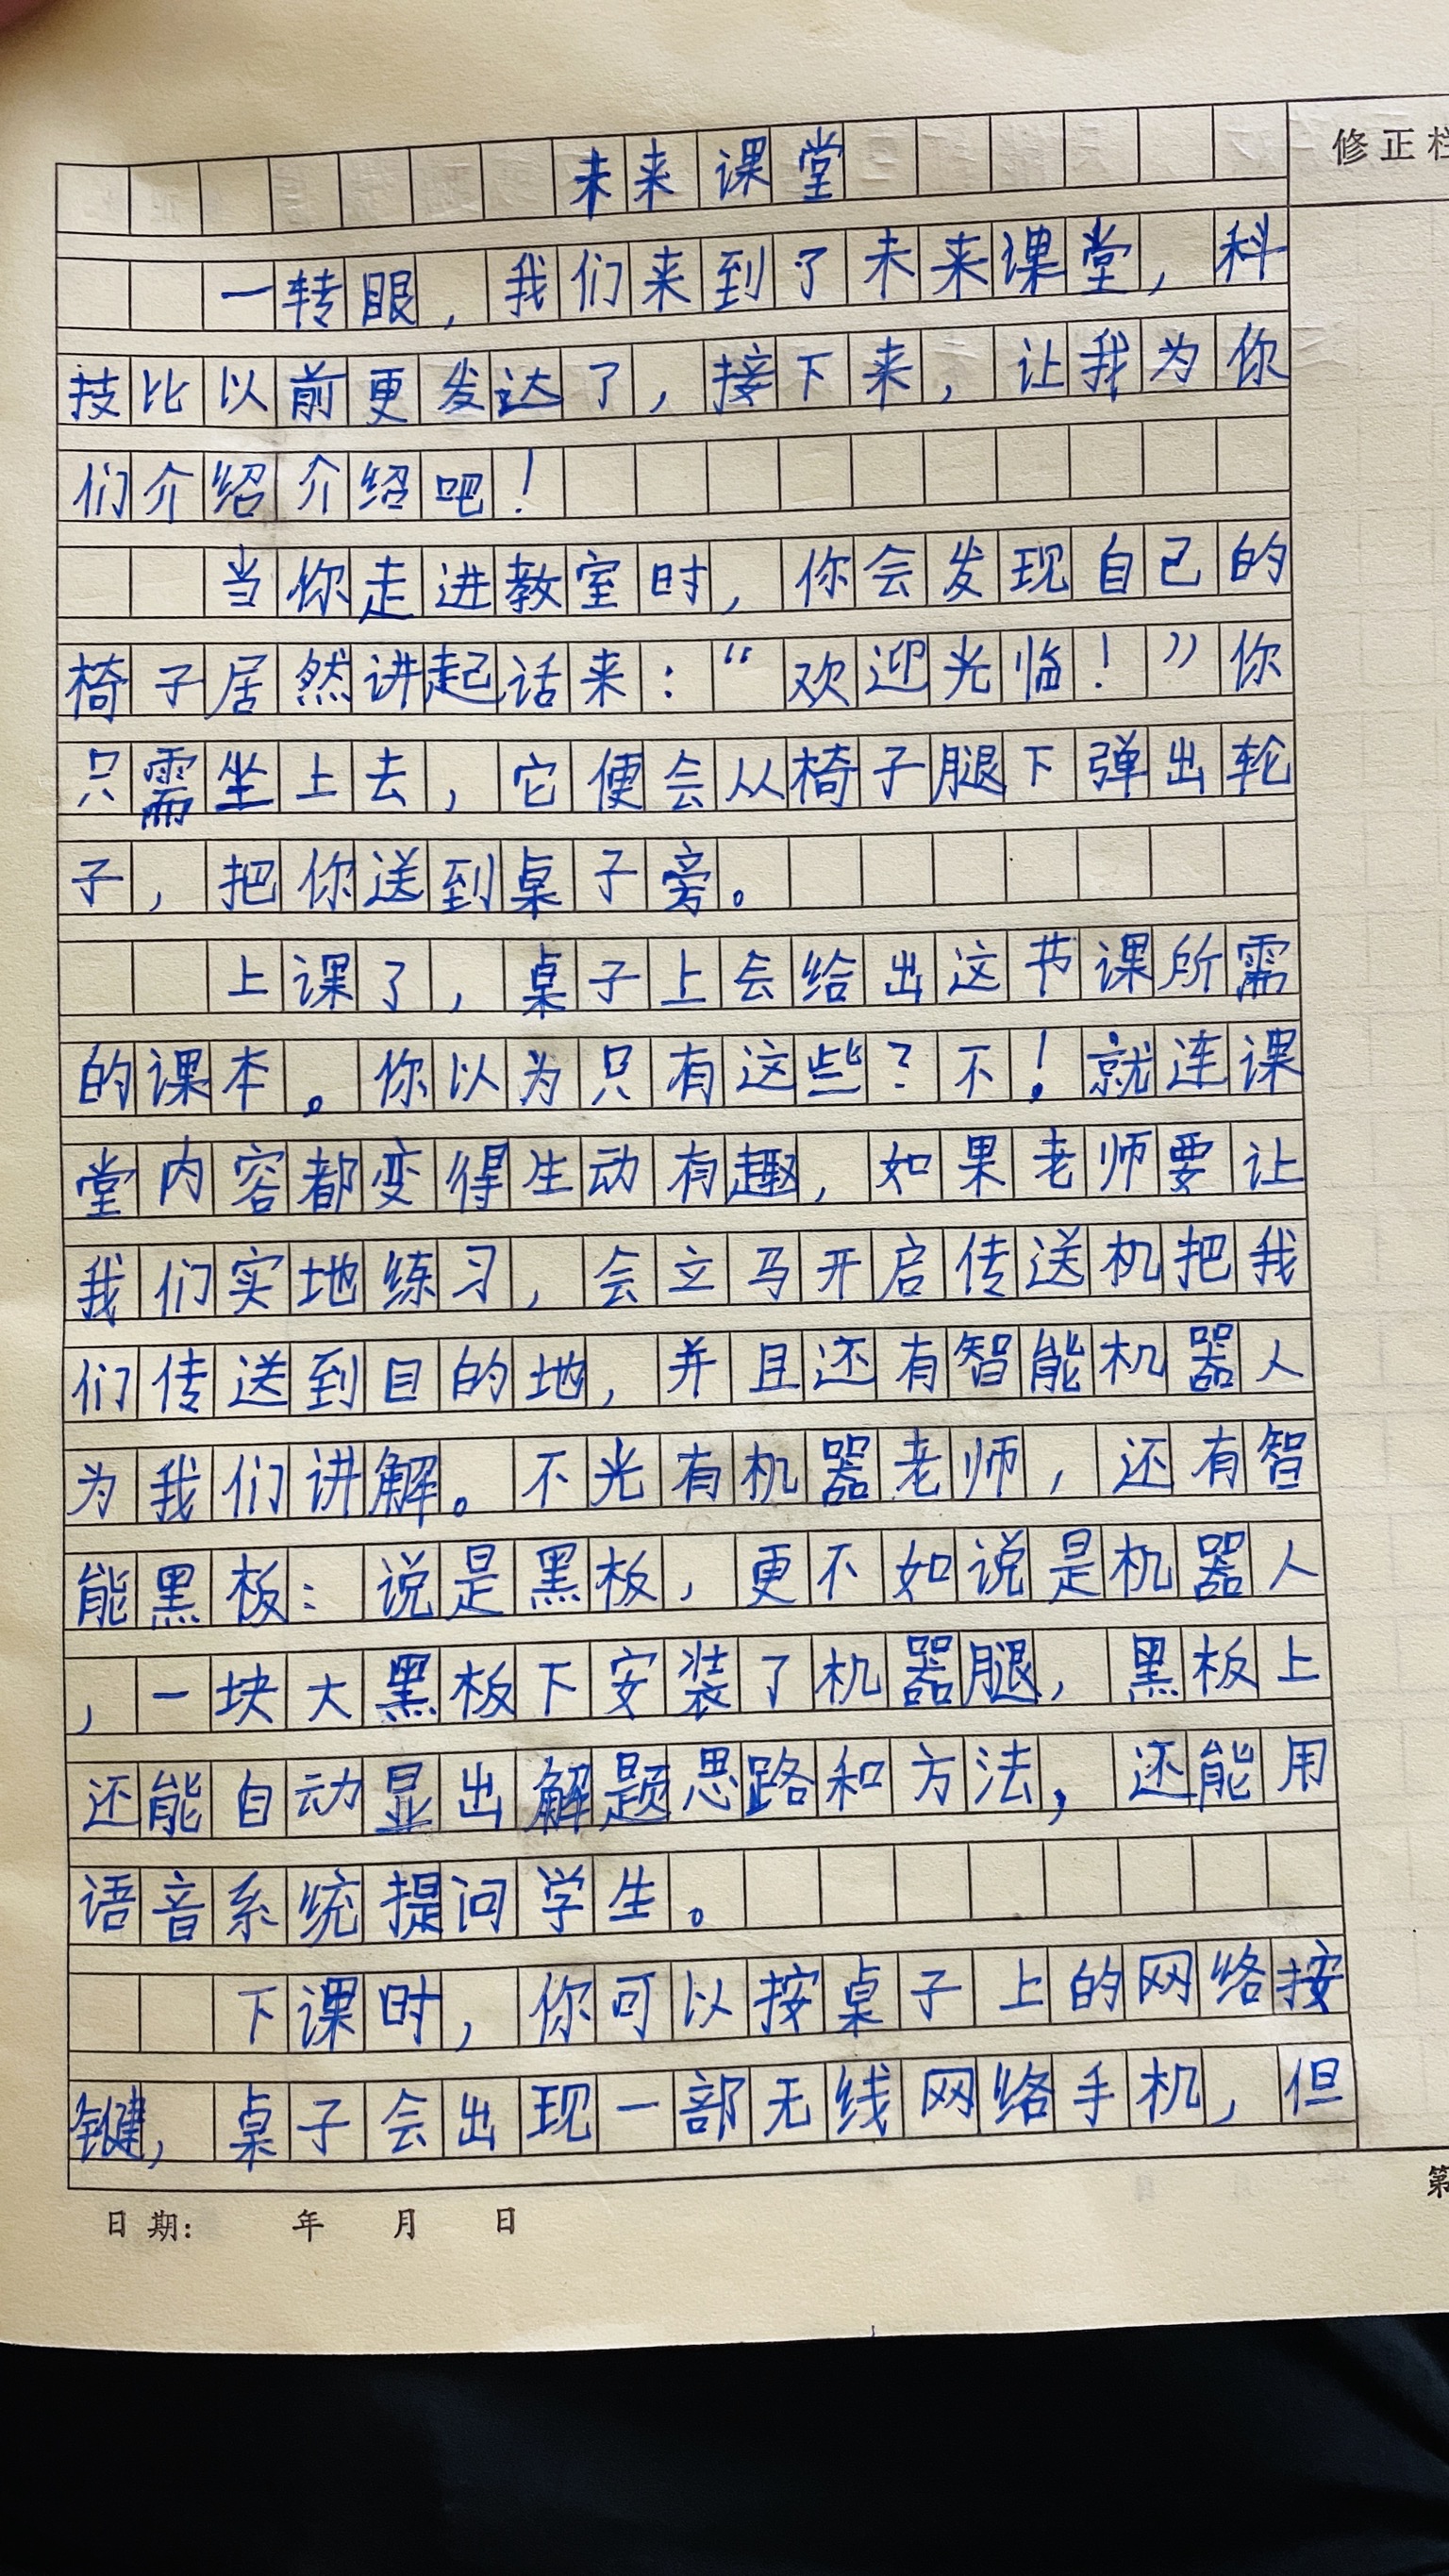 未来课堂
修正栏
一转眼,我们来到了未来课堂,科
技比以前更发达了,接下来,让我为你
们介绍介绍吧!
当你走进教室时,你会发现自己的
椅子居然讲起话来:“欢迎光临!”你
只需坐上去,它便会从椅子腿下弹出轮
子,把你送到桌子旁。
上课了,桌子上会给出这节课所需
的课本。你以为只有这些?不!就连课
堂内容都变得生动有趣,如果老师要让
我们实地练习,会立马开启传送机把我
们传送到目的地,并且还有智能机器人
为我们讲解。不光有机器老师,还有智
能黑板:说是黑板,更不如说是机器人
,一块大黑板下安装了机器腿,黑板上
还能自动显出解题思路和方法,还能用
语音系统提问学生。
下课时,你可以按桌子上的网络按
键,桌子会出现一部无线网络手机,但
第
日期: 年 月 日